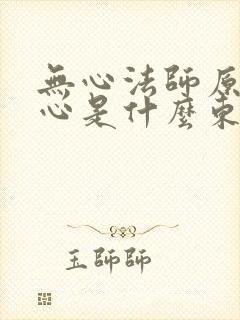 無心法師原
心是什麼東
玉師師